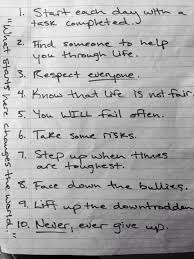 1. Start each day with a
task completed.
2. Find someone to help
you through life.
3. Respect everyone.
4. Know that life is not fair.
5. You WILL fail often.
6. Take some risks.
7. Step up when times
are toughest.
8. Face down the bullies.
9. Lift up the downtrodden
10. Never, ever give up.
"What starts here changes the world."